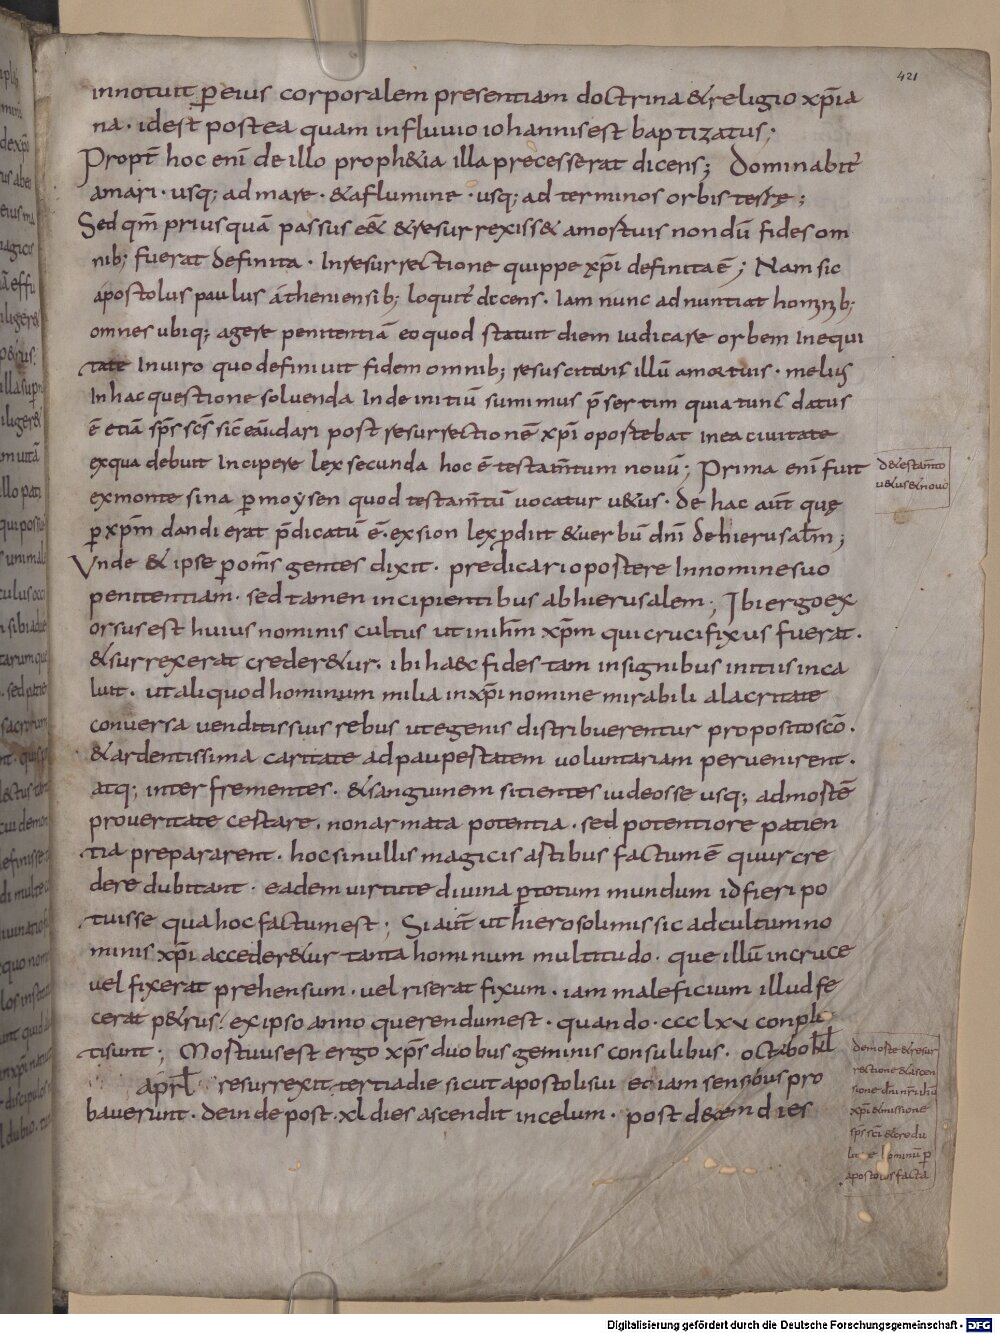 421
innotuit p̲ eius corporalem presentiam doctrina & religio xp̄ia
na · idest postea quam influuio iohannis est baptizatus ;
Propt̄ hoc enī de illo proph&ia illa precesserat dicens ; Dominabit̄
amari · usq; ad mare · & aflumine · usq; ad terminos orbis terre ;
Sed qm̄ priusquā passus eēt & resurrexiss& amortuis nondū fides om
nib; fuerat definita · In resurrectione quippe xp̄i definita ē ; Nam sic
apostolus paulus atheniensib; loquit̄ dicens · Iam nunc adnuntiat hominib;
omnes ubiq; agere penitentiā eo quod statuit diem iudicare orbem In equi
tate In uiro quo definiuit fidem omnib; resuscitans illū amortuis · melius
In hac questione soluenda Inde initiū sumimus p̄sertim quia tunc datus
ē etiā sp̄s sc̄s sic eā dari post resurrectionē xp̄i oportebat in ea ciuitate
exqua debuit Incipere lex secunda hoc ē testam̄tum nouū ; Prima enī fuit
exmonte sina p̲ moysen quod testam̄tū uocatur u&us · de hac aut̄ quę
p̲ xp̄m dandi erat p̄dicatū ē · ex sion lex p̲diit & uerbū dn̄i de hierusalm̄ ;
Vnde & ipse p̲ om̄s gentes dixit · predicari oportere In nomine suo
penitentiam · sed tamen incipientibus ab hierusalem ; Ibi ergo ex
orsus est huius nominis cultus ut in ih̄m xp̄m qui crucifixus fuerat ·
& surrexerat creder&ur · ibi haec fides tam insignibus initiis inca
luit · ut aliquod hominum milia in xp̄i nomine mirabili alacritate
conuersa uenditis suis rebus ut egenis distribuerentur proposito sc̄o ·
& ardentissima caritate ad paupertatem uoluntariam peruenirent ·
atq; inter frementes · & sanguinem sitientes iudeos se usq; ad mortē
pro ueritate certare · non armata potentia · sed potentiore patien
tia prepararent · hoc si nullis magicis artibus factum ē quur cre
dere dubitant · eadem uirtute diuina p̲ totum mundum id fieri po
tuisse qua hoc factum est ; Si aut̄ ut hierosolimis sic ad cultum no
minis xp̄i acceder&ur tanta hominum multitudo · que illū in cruce
uel fixerat prehensum · uel riserat fixum · iam maleficium illud fe
cerat p&rus · ex ipso anno querendum est · quando · ccclxv conpli
tisunt ; Mortuus est ergo xp̄s duobus geminis consulibus · octabo kl̄
aprl̄ resurrexit tertia die sicut apostoli sui etiam sensibus pro
bauerunt · deinde post · xl dies ascendit in celum · post decem dies
d& estam̄to
u&us & nouo
de morte & resur
rectione & ascen
sione dn̄i nr̄i ih̄u
xp̄i & missione
sp̄s sc̄i & credu
hominū p̲
apostolos facta
Digitalisierung gefördert durch die Deutsche Forschungsgemeinschaft - DFG